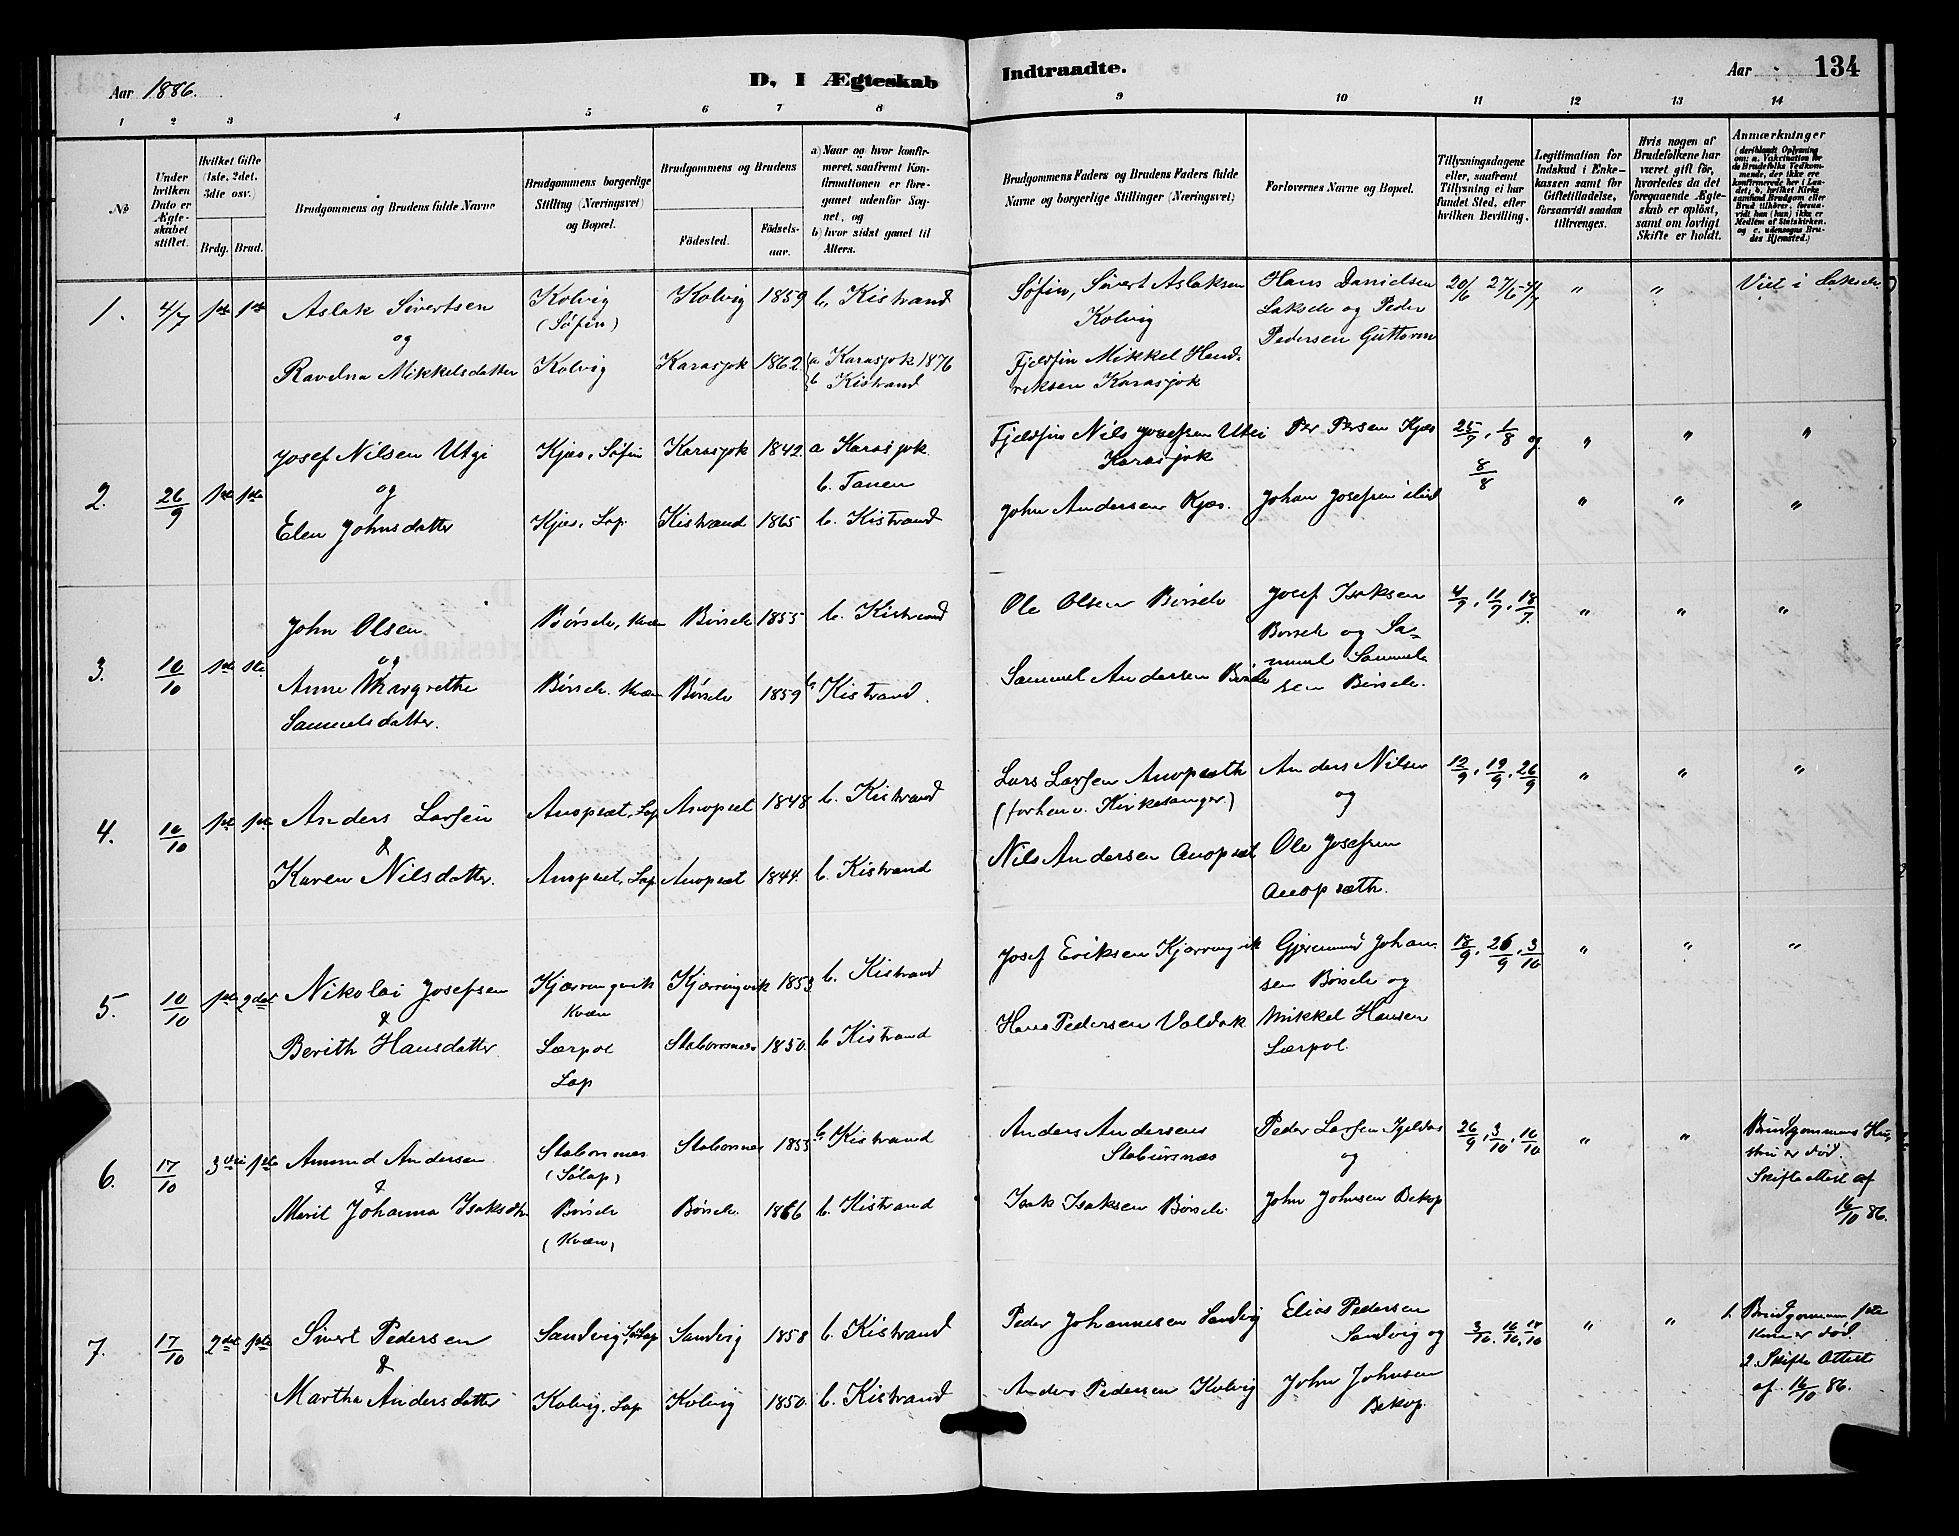 Aar 1886.
D. I Ægteskab
Indtraadte.
Aar
134
1 2 3 4 5 6 7 8 9 10 11 12 13 14
No
Under hvilken Dato er Ægteskabet stiftet.
Hvilket Gifte (1ste, 2det, 3die osv.)
Brdg. Brud.
Brudgommens og Brudens fulde Navne
Brudgommens borgerlige Stilling (Næringsvei) og Bopæl.
Brudgommens og Brudens
Fødested.
Fødselsaar.
a) Naar og hvor konfirmeret, saafremt Konfirmationen er foregaaet udenfor Sognet, og
b) hvor sidst gaaet til Alters.
Brudgommens Faders og Brudens Faders fulde Navne og borgerlige Stillinger (Næringsvei)
Forlovernes Navne og Bopæl.
Tillysningsdagene eller, saafremt Tillysning ei har fundet Sted, efter hvilken Bevilling.
Legitimation for Indskud i Enkekassen samt for Giftetilladelse, forsaavidt saadan tiltrænges.
Hvis nogen af Brudefolkene har været gift før, hvorledes da det foregaaende Ægteskab er opløst, samt om lovligt Skifte er holdt.
Anmærkninger (deriblandt Oplysning om: a. Vakcination for de Brudefolks Vedkommende, der ikke ere konfirmerede her i Landet; b. hvilket Kirkesamfund Brudgom eller Brud tilhører, forsaavidt han (hun) ikke er Medlem af Statskirken, og c. udensogns Brudes Hjemsted.)
1. 4/7 1ste 1ste Aslak Sivertsen Kolvig (Søfin) Kolvig 1859 b. Kistrand Søfin, Sivert Aslaksen Kolvig Hans Danielsen Lakselv og Peder Pedersen Guttorm 20/6 27/6 4/7 " " Viet i Lakselv
og
Ravdna Mikkelsdatter Kolvig Karasjok 1862. a Karasjok 1876 b Kistrand Fjeldfin Mikkel Hendriksen Karasjok
2. 26/9 1ste 1ste Josef Nilsen Utsi Kjæs, Søfin Karasjok 1842. a Karasjok. b. Tanen Fjeldfin Nils Josefsen Utsi Karasjok Per Persen Kjæs 25/7, 1/8 og 8/8 " " "
og
Elen Johnsdatter Kjæs, Lap. Kistrand 1865 b. Kistrand John Andersen Kjæs. Johan Josefsen ibid " " "
3. 10/10 1ste 1ste John Olsen Børselv, Kvæn Børselv 1855 b. Kistrand Ole Olsen Børselv Josef Isaksen Børselv og Samuel Samuelsen Børselv. 4/7, 11/7, 18/7 " " "
og
Anne Margrethe Samuelsdatter. Børselv. Kvæn Børselv 1859 b. Kistrand. Samuel Andersen Børselv
4. 10/10 1ste 1ste Anders Larsen Anopset, Lap Anopset 1848 b. Kistrand Lars Larsen Anopsæth (forhenv. Kirkesanger) Anders Nilsen og 12/9, 19/9, 26/9 " " "
&
Karen Nilsdatter. Anopset, Lap Anopset 1844. b. Kistrand Nils Andersen Anopset Ole Josefsen Anopsæth.
5. 10/10 1ste 2det Nikolai Josefsen Kjærringvik Kvæn Kjærringvik 1853 b. Kistrand Josef Eriksen Kjærringvik Johansen Børselv og 19/9, 26/9, 3/10 " " "
&
Berith Hansdatter Lærpol Lap Stabursnæs 1850. b Kistrand Hans Pedersen Valdak Mikkel Hansen Lærpol.
6. 17/10 3die 1ste Amund Andersen Stabursnæs (Sølap) Stabursnæs 1853 b. Kistrand Anders Andersens Stabursnæs Peder Larsen og 26/9, 3/10, 10/10 " " Brudgommens Hustru er død. Skifteattest af 16/10 86.
&
Marit Johanna Isaksdtr Børselv (Kvæn) Børselv. 1866 b. Kistrand Isak Isaksen Børselv John Johnsen Bekop
7. 17/10 2det 1ste Sivert Pedersen Sandvig, Sølap Sandvig 1858 b. Kistrand Peder Johannesen Sandvig Elias Pedersen Sandvig og 3/10, 10/10, 17/10 " " 1. Brudgommens 1ste Kone er død. 2. Skifte Attest af 16/10 86.
&
Martha Andersdatter Kolvig, Lap Kolvig 1850. b. Kistrand Anders Pedersen Kolvig John Johnsen Bekop.